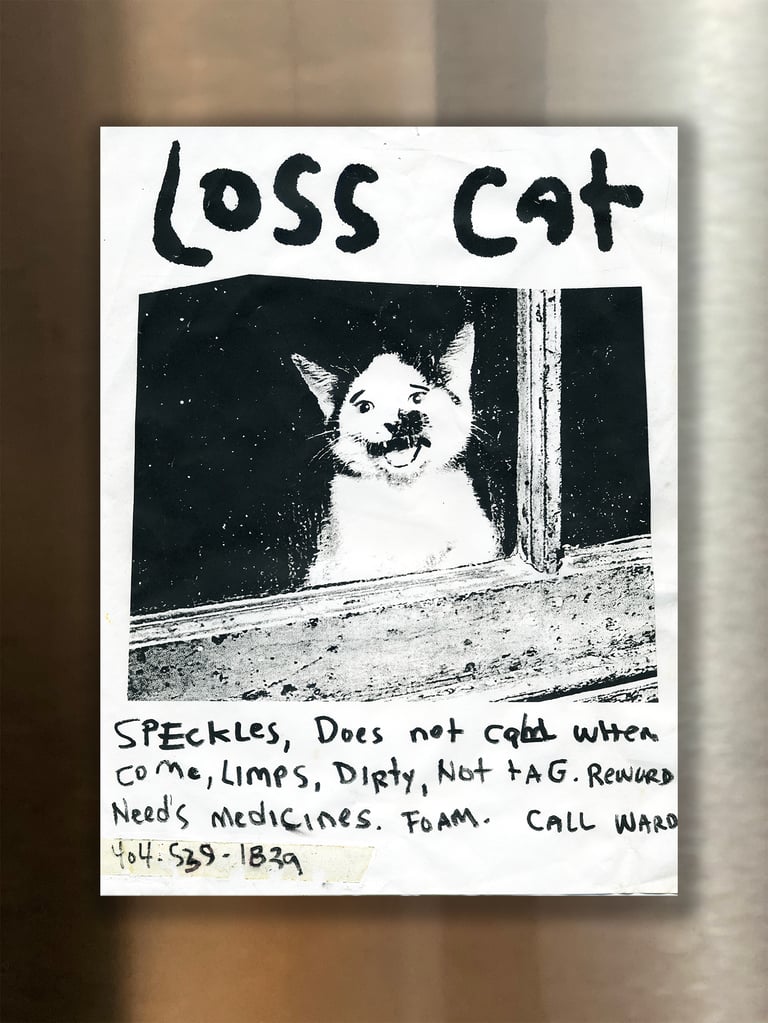 Loss cat
SPEckLES, Does not call when
come, LIMPS, DIrty, Not tAG. REWURD
Need's medicines. FOAM. CALL WARD
404-539-1839